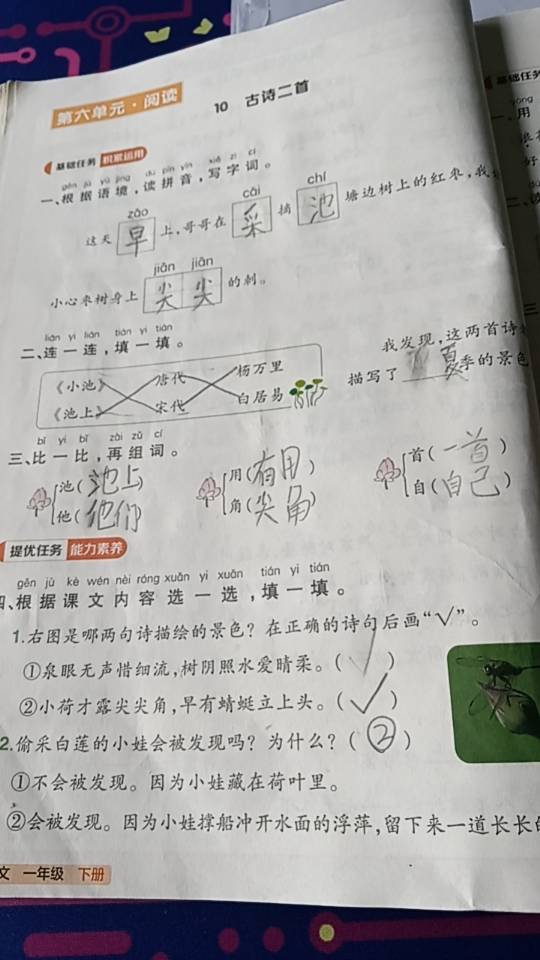 第六单元·阅读
10 古诗二首
基础任务 积累运用
gēn jù yǔ jìng dú pīn yīn xiě zì cí
一、根据语境，读拼音，写字词。
zǎo cǎi chí
这天 早 上，哥哥在 采 摘 池 塘边树上的红枣，我
jiān jiān
小心枣树身上 尖 尖 的刺。
lián yi lián tián yi tián
二、连一连，填一填。
《小池》 唐代 杨万里
《池上》 宋代 白居易
我发现，这两首诗
描写了 夏 季的景色
bǐ yi bǐ zài zǔ cí
三、比一比，再组词。
池(池上) 用(有用) 首(一首)
他(他们) 角(尖角) 自(自己)
提优任务 能力素养
gēn jù kè wén nèi róng xuǎn yi xuǎn tián yi tián
四、根据课文内容选一选，填一填。
1.右图是哪两句诗描绘的景色？在正确的诗句后画“√”。
①泉眼无声惜细流，树阴照水爱晴柔。( )
②小荷才露尖尖角，早有蜻蜓立上头。(√)
2.偷采白莲的小娃会被发现吗？为什么？(②)
①不会被发现。因为小娃藏在荷叶里。
②会被发现。因为小娃撑船冲开水面的浮萍，留下来一道长长的
文 一年级 下册
基础任务
yòng
一、用